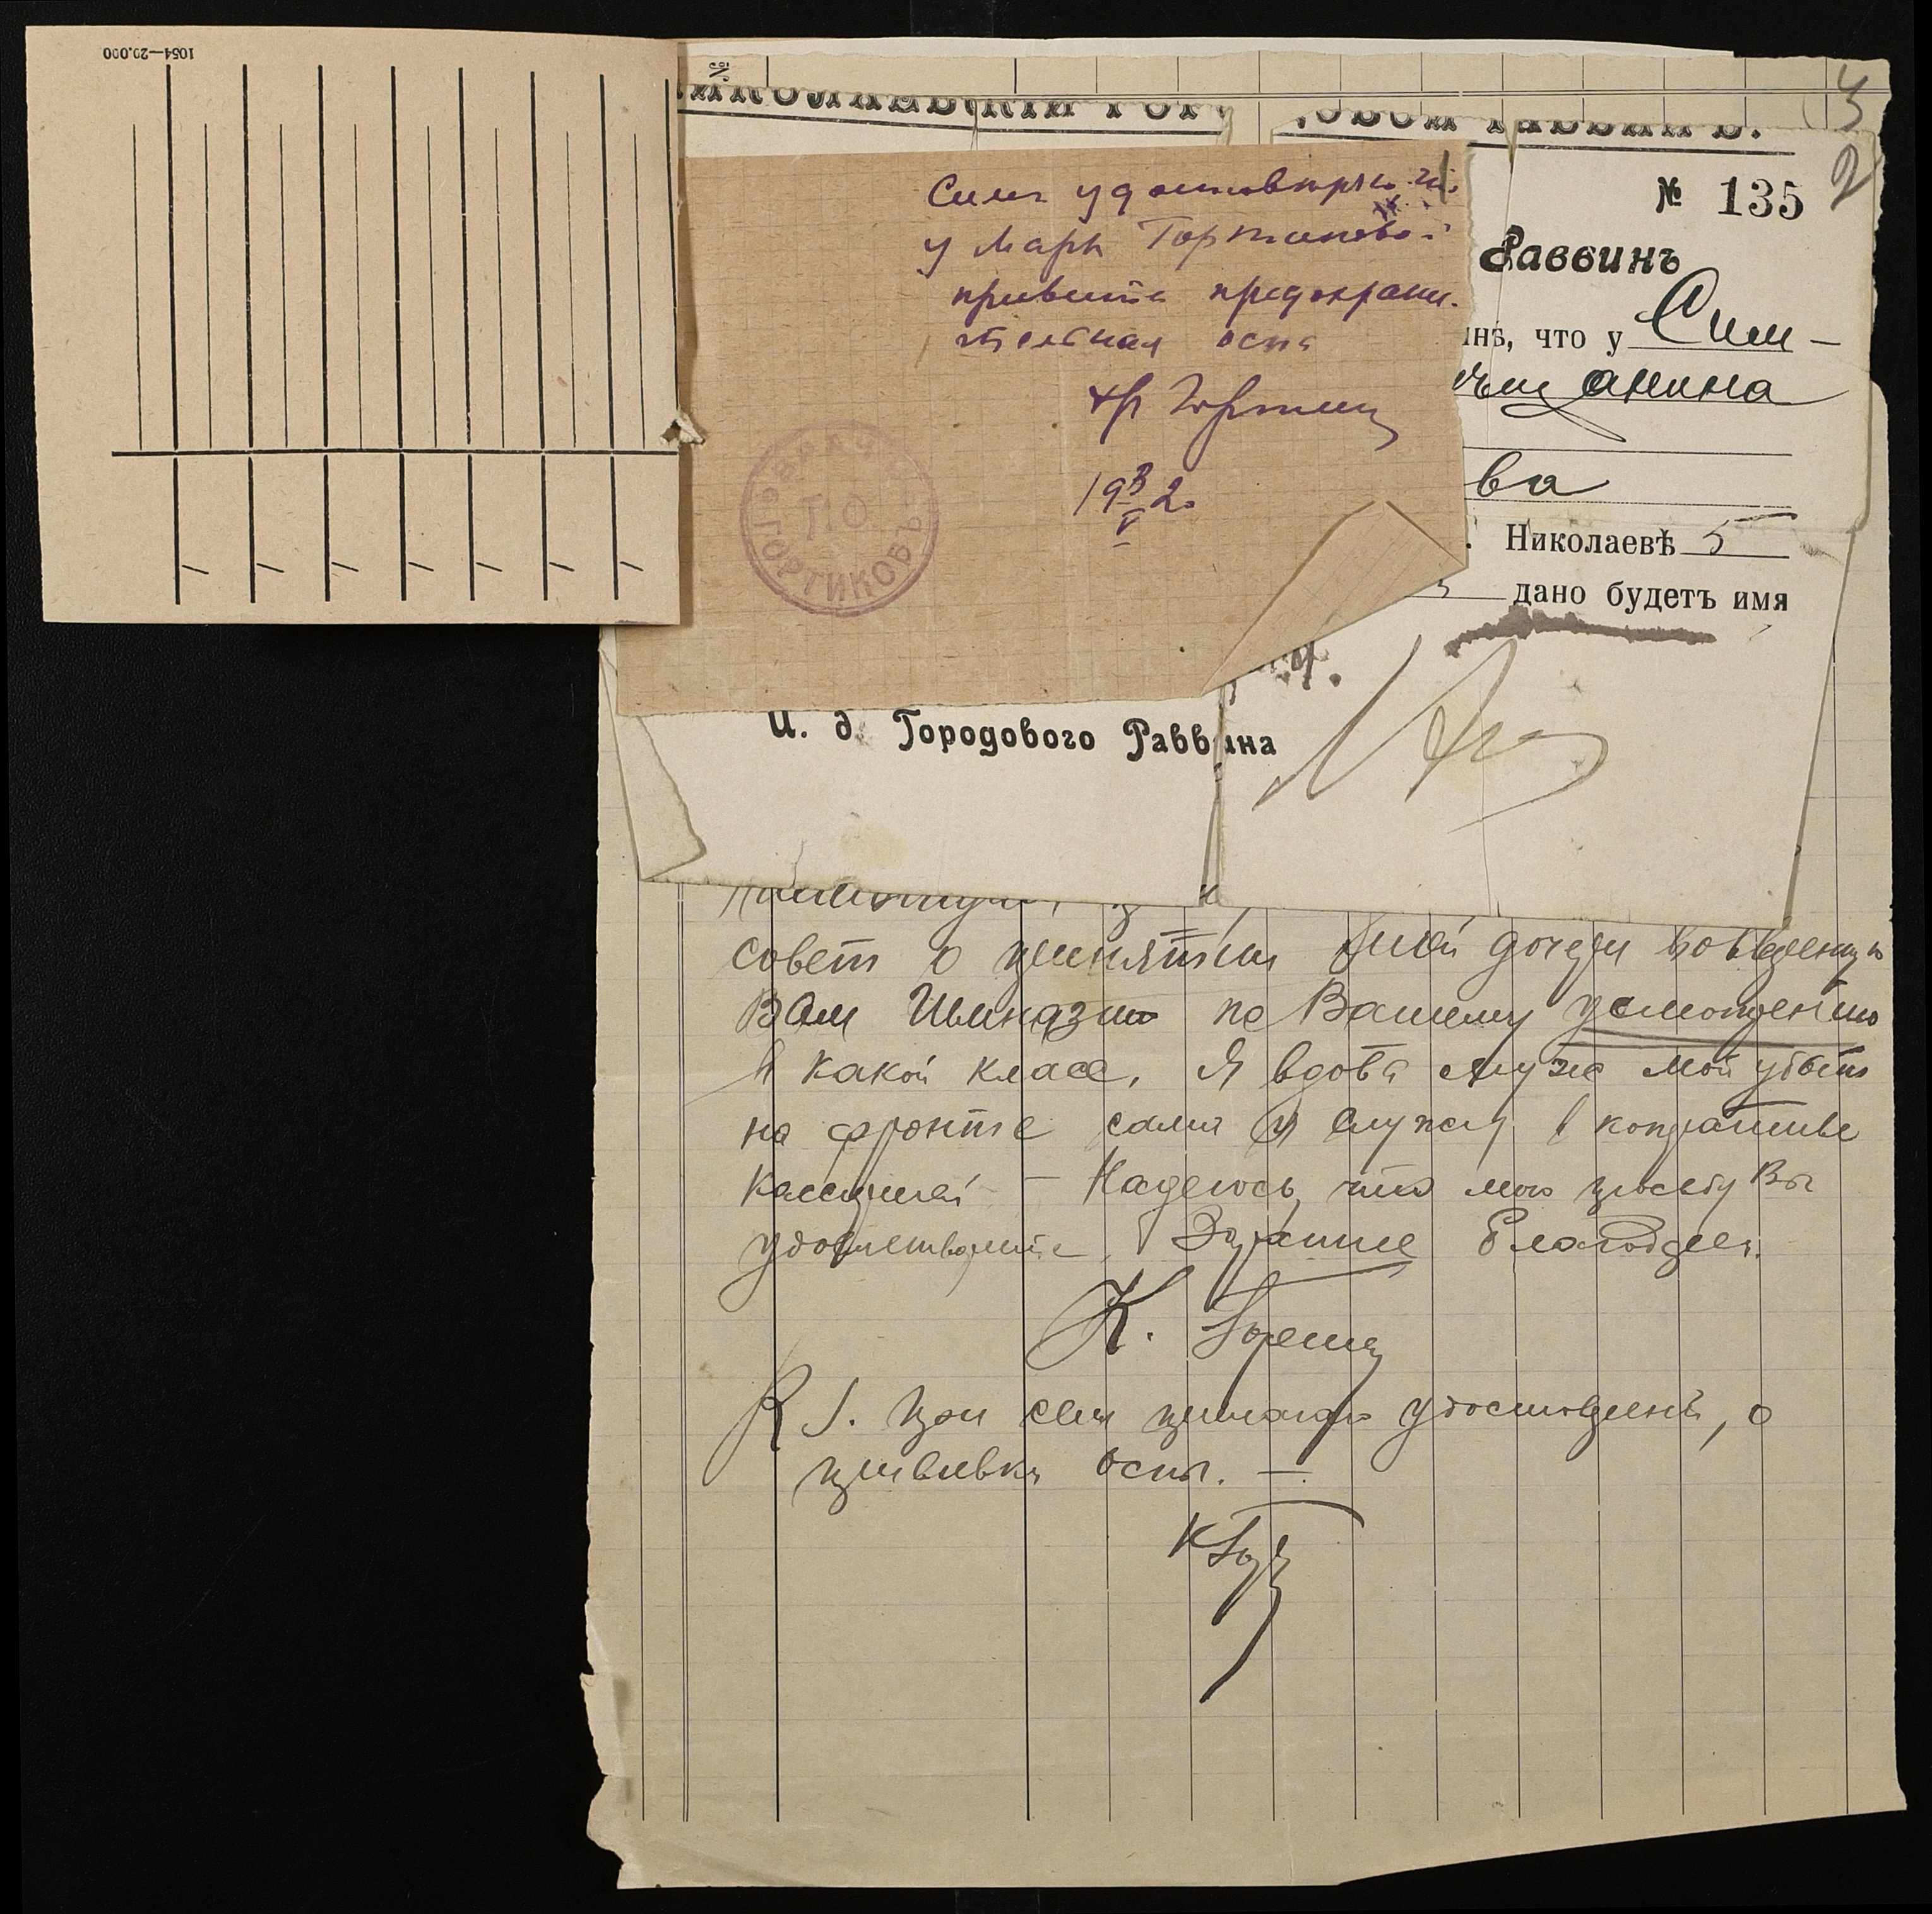 1054—20.000
№ 135
Раввинъ
что у Сим-
ва
Николаевѣ 5
дано будетъ имя
И. д. Городового Раввина
Сим удостовѣряю, что
у Маріи Гортиковой
привита предохрани-
тельная оспа
вр Гортик
19 3/V 2.
ВРАЧЪ
Г.О.
ГОРТИКОВЪ
совет о принятии моей дочери во вверенную
Вам Гимназию по Вашему усмотрению
в какой класс. Я вдова муж мой убит
на фронте сама я служу в
кассиршей — Надеюсь, что мою просьбу Вы
удовлетворите. Заранее благодарен.
К.
P S. При сем прилагаю удостоверение, о
прививки оспы. —